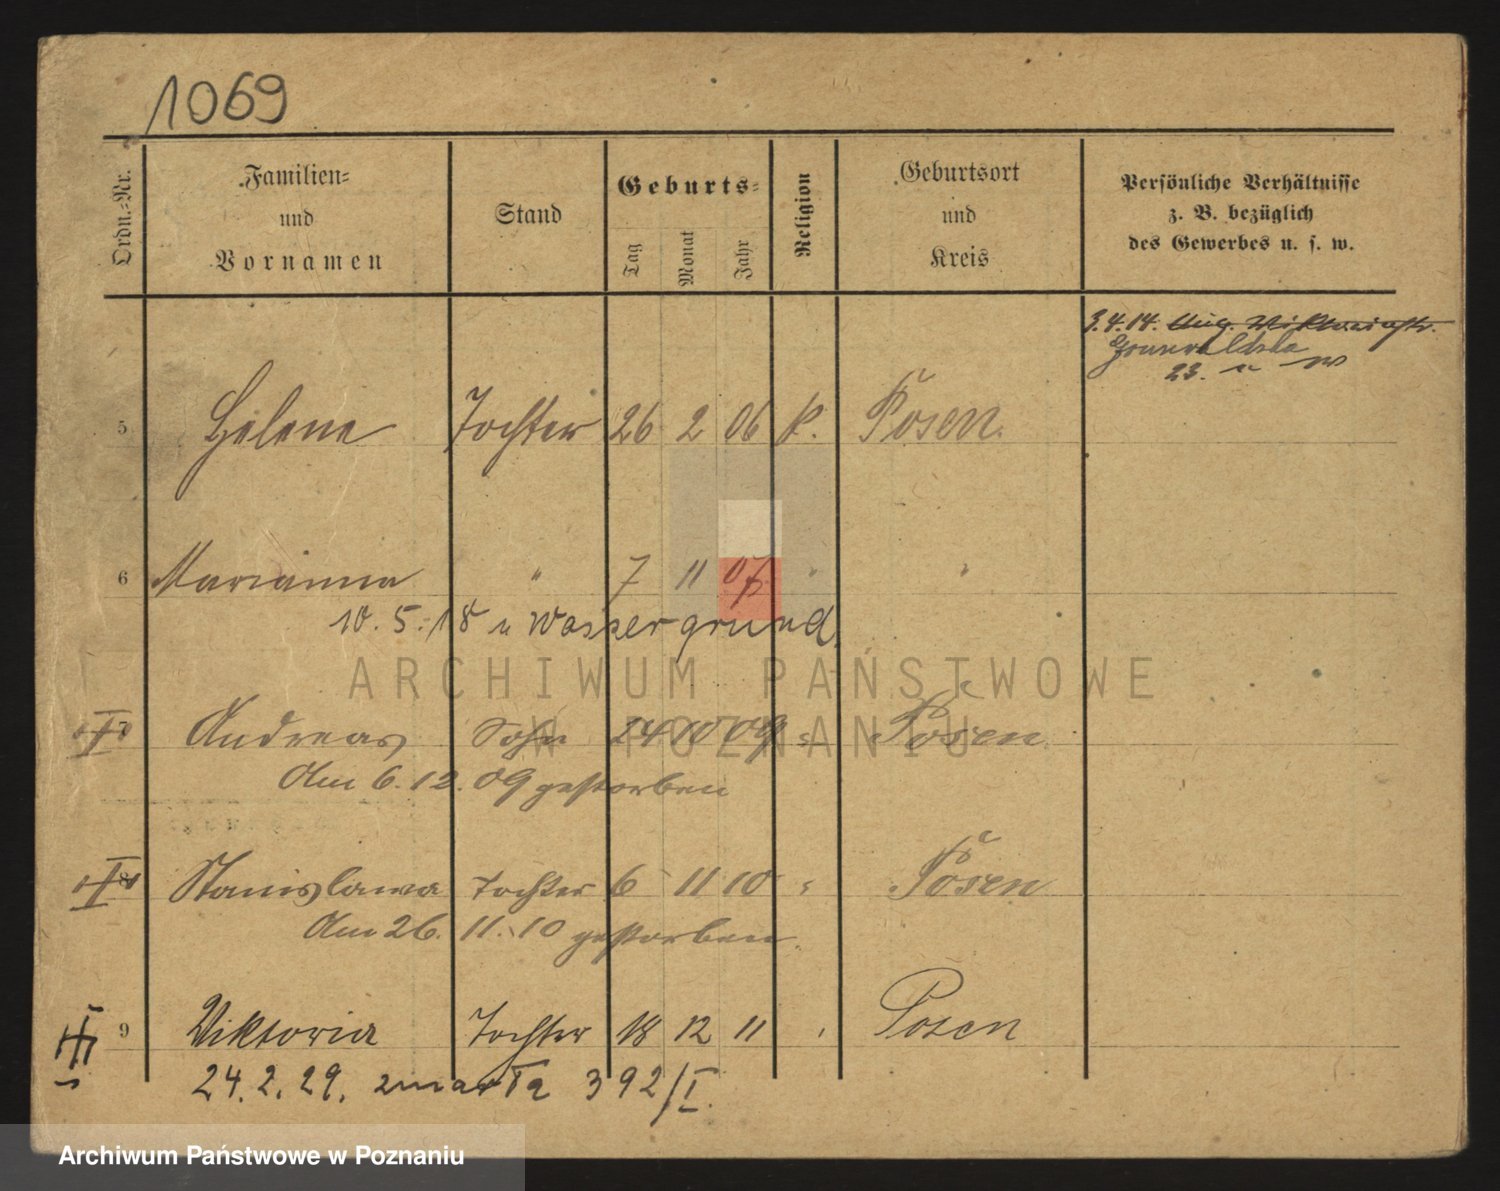 1069
Ordn.-Nr.
Familien-
und
Vornamen
Stand
Geburts-
Tag
Monat
Jahr
Religion
Geburtsort
und
Kreis
Persönliche Verhältnisse
z. B. bezüglich
des Gewerbes u. s. w.
3.4.14. Aug. Viktoriastr.
23.
5 Helene Tochter 26 2 06 k. Posen.
6 Marianna " 7 11 07 " "
10. 5. 18 n Wassergrund
7 Andreas Sohn 24 10 09 " Posen
Am 6. 12. 09 gestorben
8 Stanislawa Tochter 6 11 10 " Posen
Am 26. 11. 10 gestorben.
9 Viktoria Tochter 18 12 11 " Posen
24. 2. 29. zmarła 392/I.
ARCHIWUM PAŃSTWOWE
W POZNANIU
Archiwum Państwowe w Poznaniu